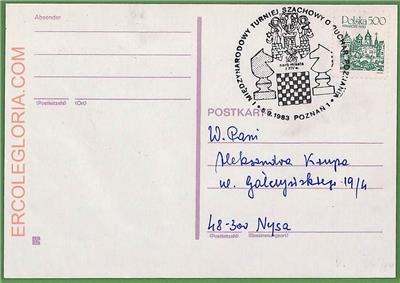 Absender
(Postleitzahl) (Ort)
MIĘDZYNARODOWY TURNIEJ SZACHOWY O "PUCHAR POZNANIA"
herb miasta
z XIV w.
9.1983 POZNAŃ 1
Polska 500
POSTKARTE
W. Pani
Aleksandra Krupa
ul. Gałczyńskiego 19/4
48-300 Nysa
(Postleitzahl) (Bestimmungsort)
ERCOLEGLORIA.COM